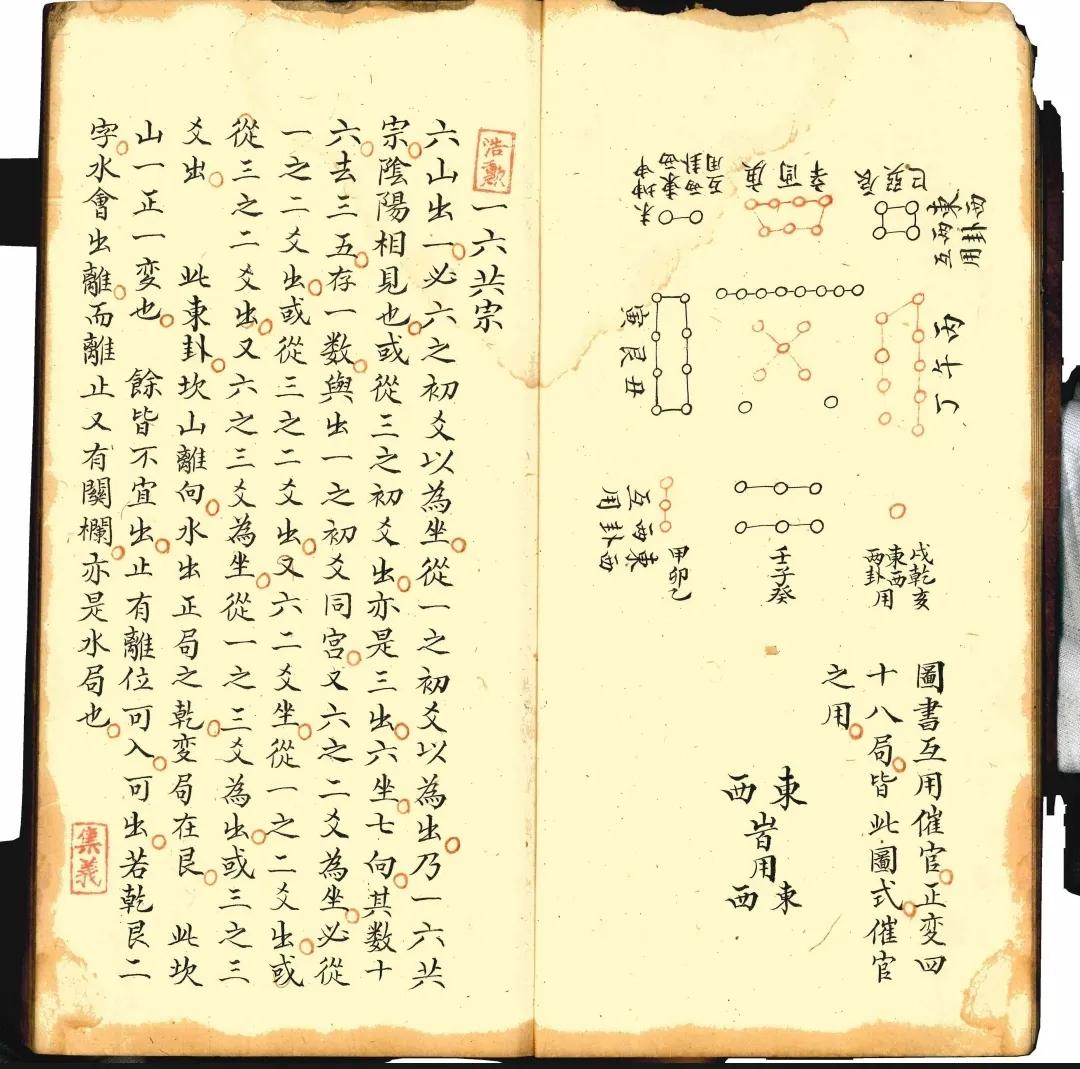 圖書互用催官正変四
十八局皆此圖式催官
之用
東西
皆用
東西
巳巽辰
東西
西卦
互用
辛酉庚
未坤申
東西
西卦
互用
丙午丁
丑艮寅
戌乾亥
東西
两卦
用
壬子癸
甲卯乙
東西
西卦
互用
浩勲
一六共宗
六山出一必六之初爻以為坐從一之初爻以為出乃一六共
宗陰陽相見也或從三之初爻出亦是三出六坐七向其数十
六去三五存一数與出一之初爻同宮又六之二爻為坐必從
一之二爻出或從三之二爻出又六二爻坐從一之二爻出或
從三之二爻出又六之三爻為坐從一之三爻為出或三之三
爻出 此東卦坎山離向水出正局之乾変局在艮 此坎
山一正一変也 餘皆不宜出止有離位可入可出若乾艮二
字水會出離而離止又有關欄亦是水局也
集義